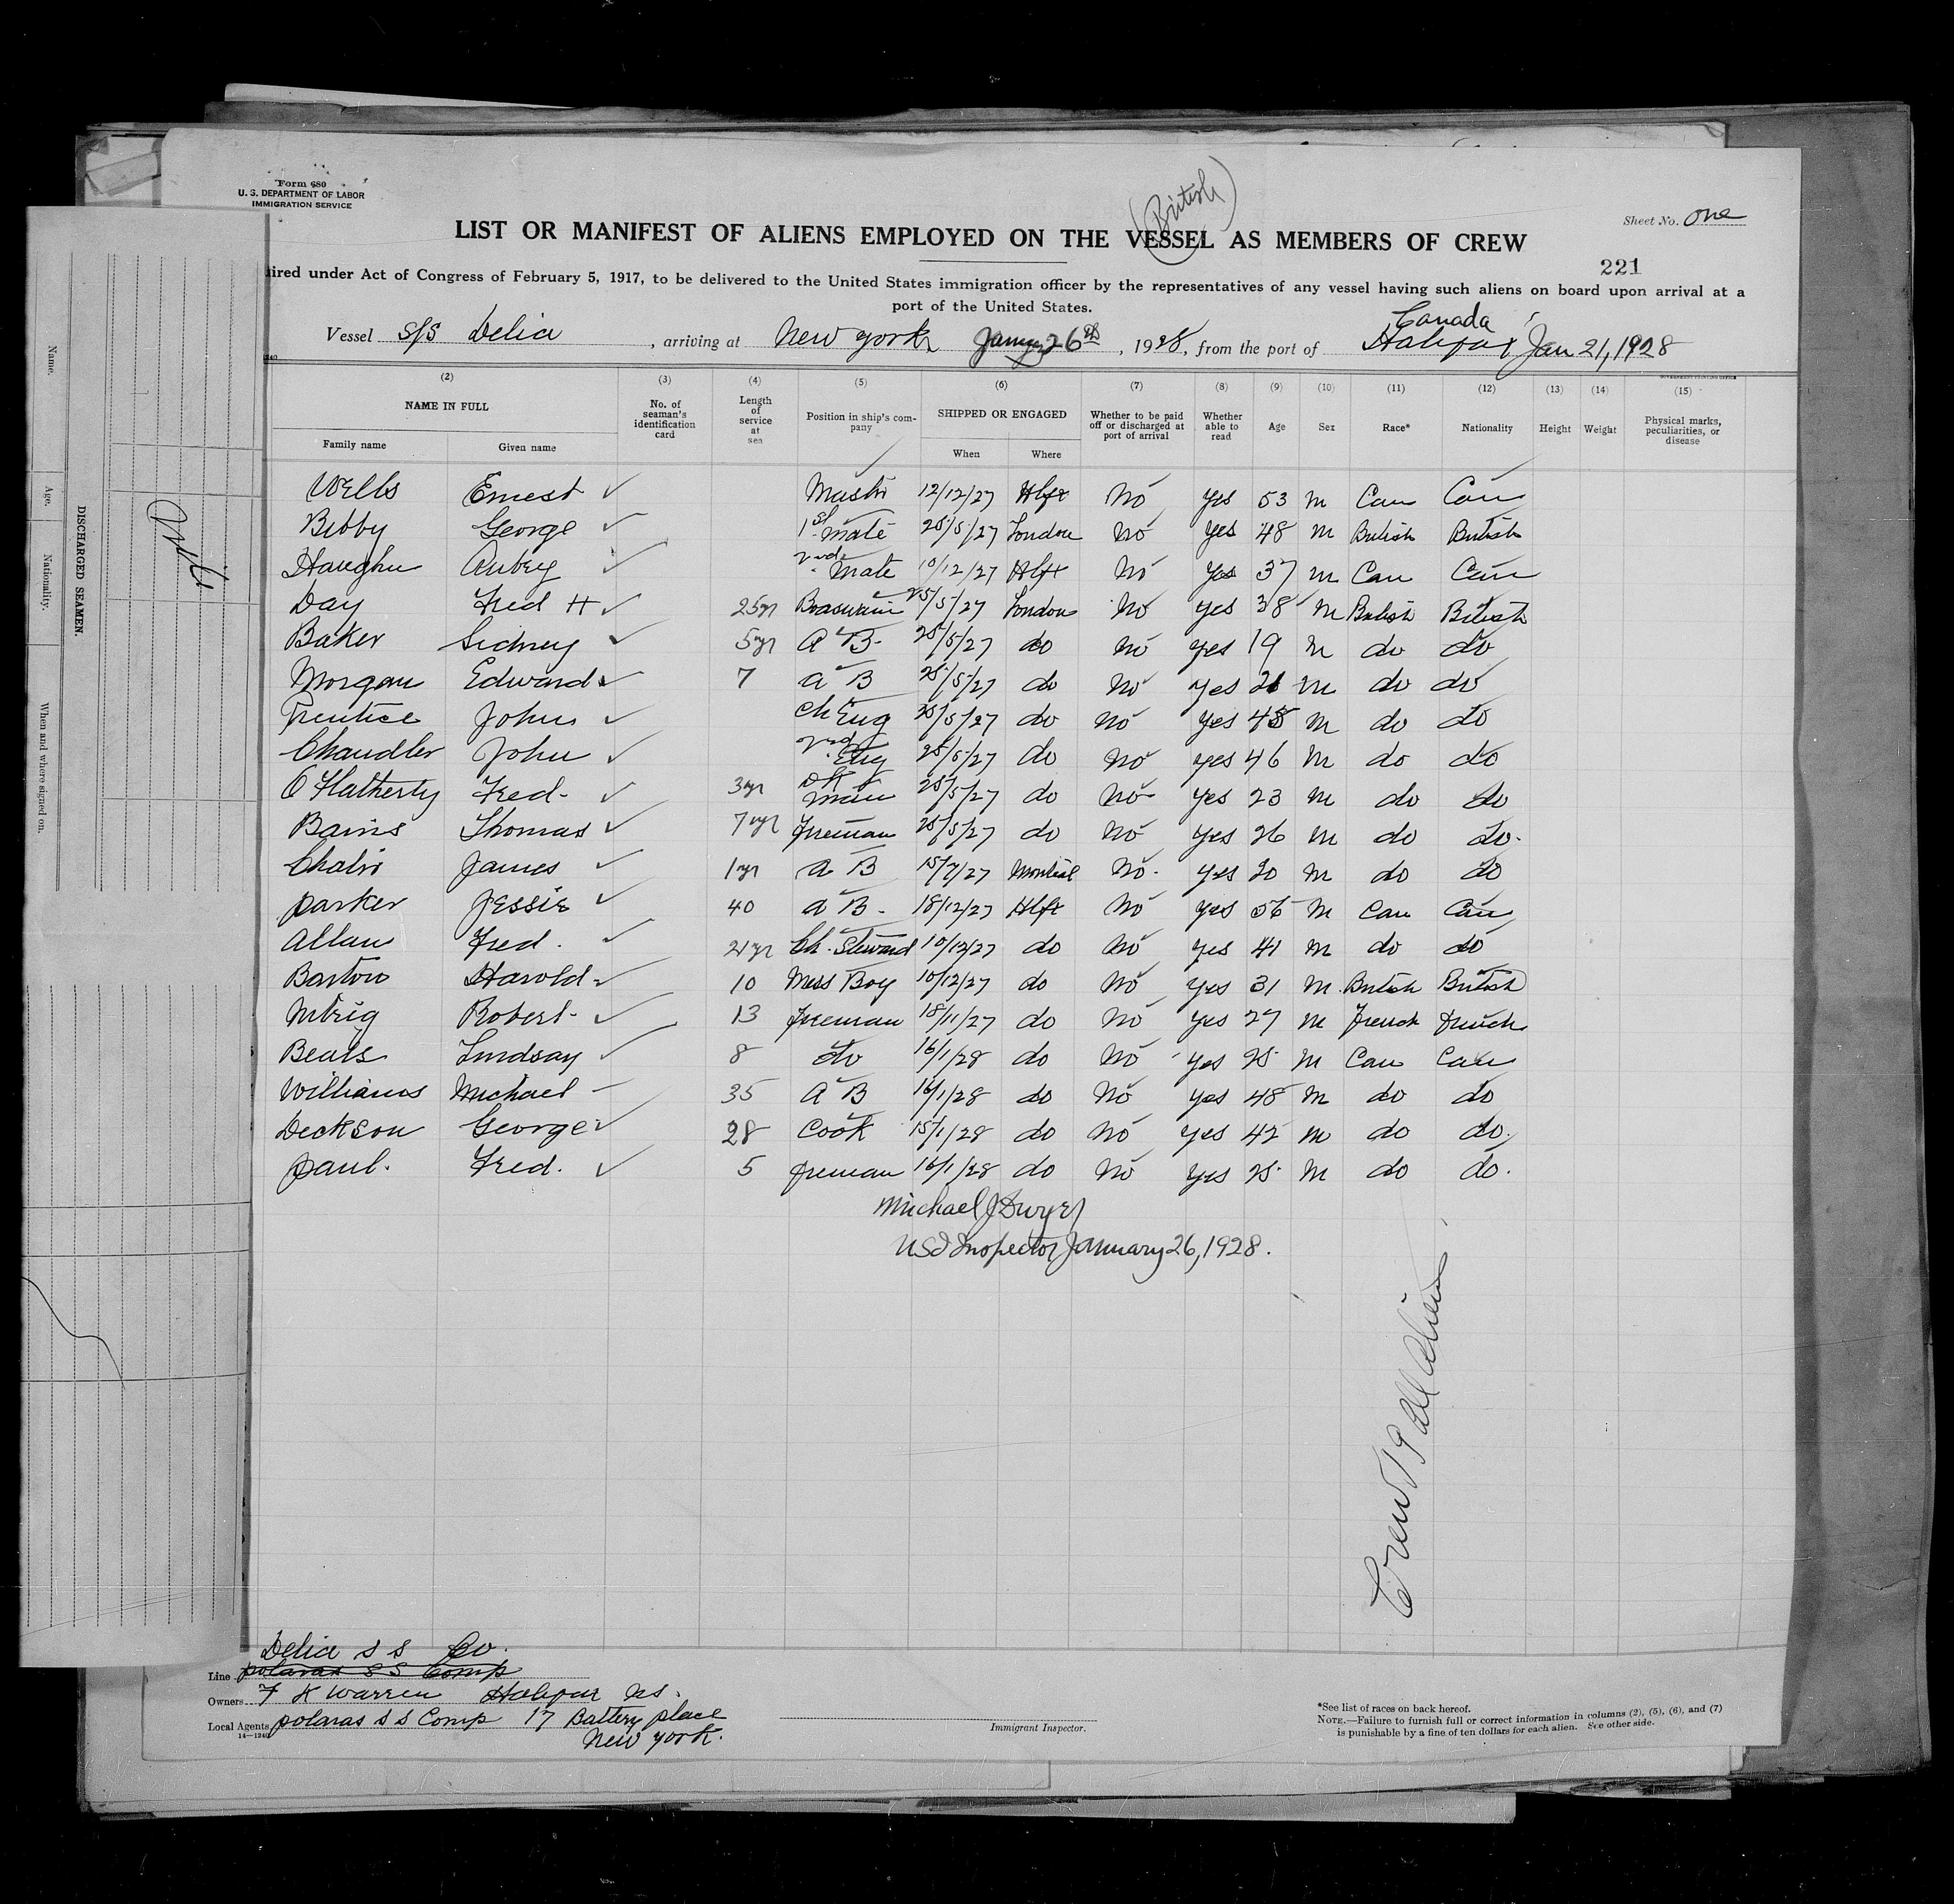 Form 680
U. S. DEPARTMENT OF LABOR
IMMIGRATION SERVICE
(British)
Sheet No. One
LIST OR MANIFEST OF ALIENS EMPLOYED ON THE VESSEL AS MEMBERS OF CREW
221
ired under Act of Congress of February 5, 1917, to be delivered to the United States immigration officer by the representatives of any vessel having such aliens on board upon arrival at a
port of the United States.
Canada
Vessel S/S Delia, arriving at New York January 26th, 1928, from the port of Halifax Jan 21, 1928
(2) (3) (4) (5) (6) (7) (8) (9) (10) (11) (12) (13) (14) (15)
NAME IN FULL No. of seaman's identification card Length of service at sea Position in ship's company SHIPPED OR ENGAGED Whether to be paid off or discharged at port of arrival Whether able to read Age Sex Race* Nationality Height Weight Physical marks, peculiarities, or disease
Family name Given name When Where
Wells Ernest ✓ Master 12/12/27 Hlfx No yes 53 m Can Can
Bibby George ✓ 1st mate 25/5/27 London No yes 48 m British British
Aubrey ✓ 2nd Mate 10/12/27 Hlfx No Yes 37 m Can Can
Day Fred H ✓ 25yr Boaswain 25/5/27 London No yes 38 m British British
Baker Sidney ✓ 5yr A B 25/5/27 do No yes 19 m do do
Morgan Edward ✓ 7 a B 25/5/27 do No yes m do do
Prentice John ✓ Ch Eng 25/5/27 do No yes m do do
Chandler John ✓ 2nd Eng 25/5/27 do No yes 46 m do do
O Flatherty Fred ✓ 3yr Dk man 25/5/27 do No yes 23 m do do
Bains Thomas ✓ 7yr fireman 25/5/27 do No yes 26 m do do
James ✓ 1yr a B 15/7/27 Montreal No yes 20 m do do
parker Jessie ✓ 40 a B 18/12/27 Hlfx No yes 56 m Can Can
Allan Fred. ✓ 21yr Ch. Steward 10/12/27 do No yes 41 m do do
Barton Harold ✓ 10 Mess Boy 10/12/27 do No yes 31 m British British
Robert ✓ 13 fireman 18/11/27 do No yes 27 m French French
Beals Lindsay ✓ 8 do 16/1/28 do No yes 25 m Can Can
Williams Michael 35 A B 16/1/28 do No yes 48 m do do
Deckson George ✓ 28 Cook 15/1/28 do No yes 42 m do do.
paul. Fred. ✓ 5 fireman 16/1/28 do No yes 25 m do do.
Michael J Dwyer
USI Inspector January 26, 1928.
Crew 19 all aliens
Delia S S Co.
Line polaras S S Comp
Owners F K Warren Halifax NS.
Local Agents polaras S S Comp 17 Battery place
New York.
Immigrant Inspector.
*See list of races on back hereof.
NOTE.—Failure to furnish full or correct information in columns (2), (5), (6), and (7)
is punishable by a fine of ten dollars for each alien. See other side.
DISCHARGED SEAMEN.
Name.
Age.
Nationality.
When and where signed on.